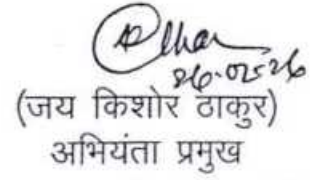 26.05.26
(जय किशोर ठाकुर)
अभियंता प्रमुख